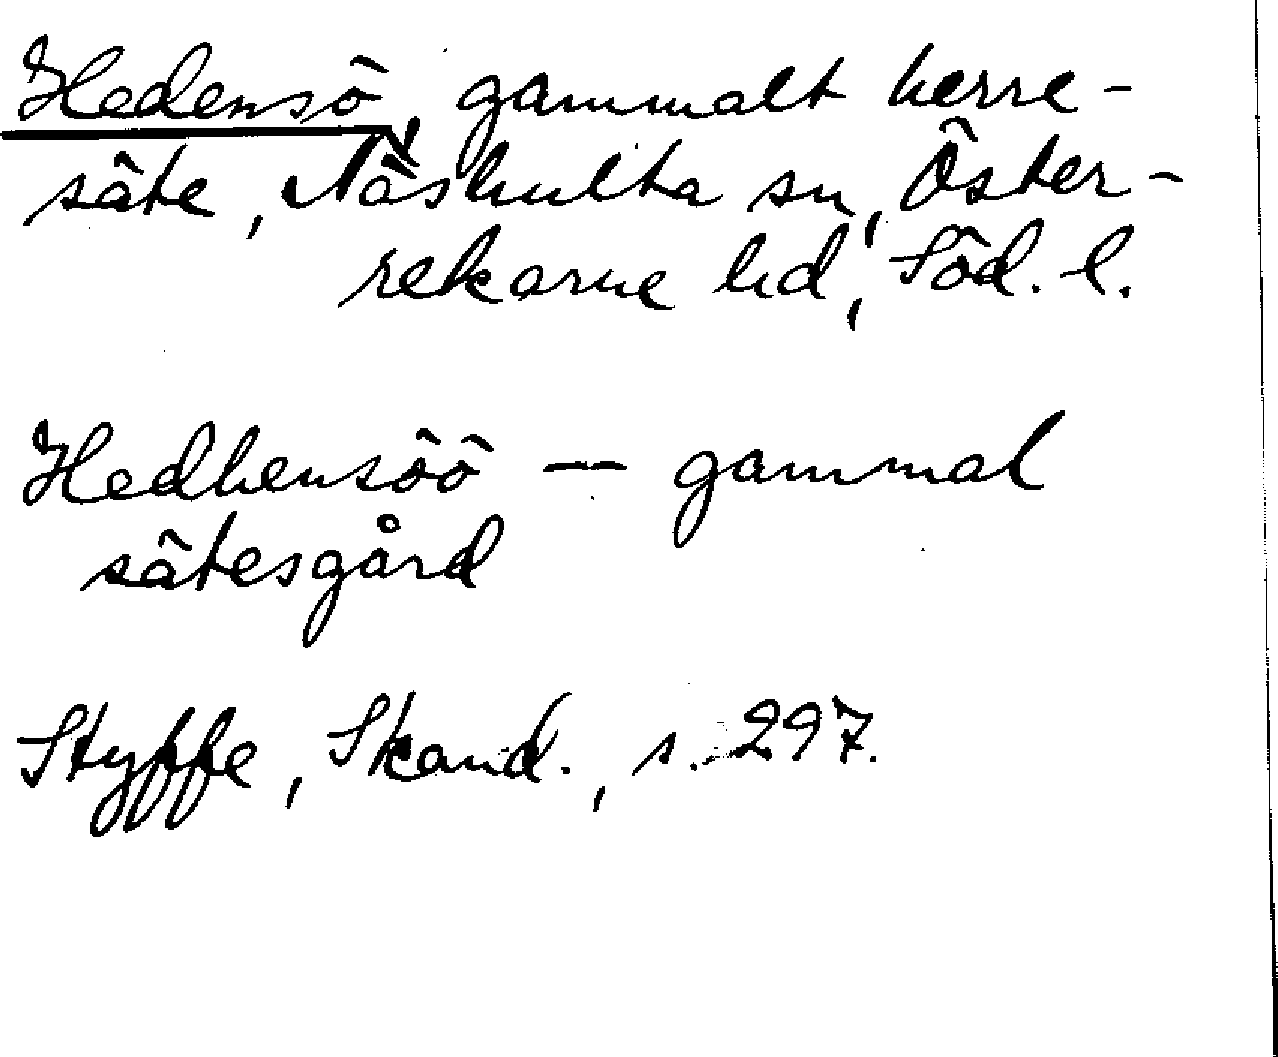 Hedensö, gammalt herre-
säte, Näshulta sn, Öster-
rekarne hd, Söd. l.
Hedhensöö — gammal
sätesgård
Styffe, Skand., s. 297.